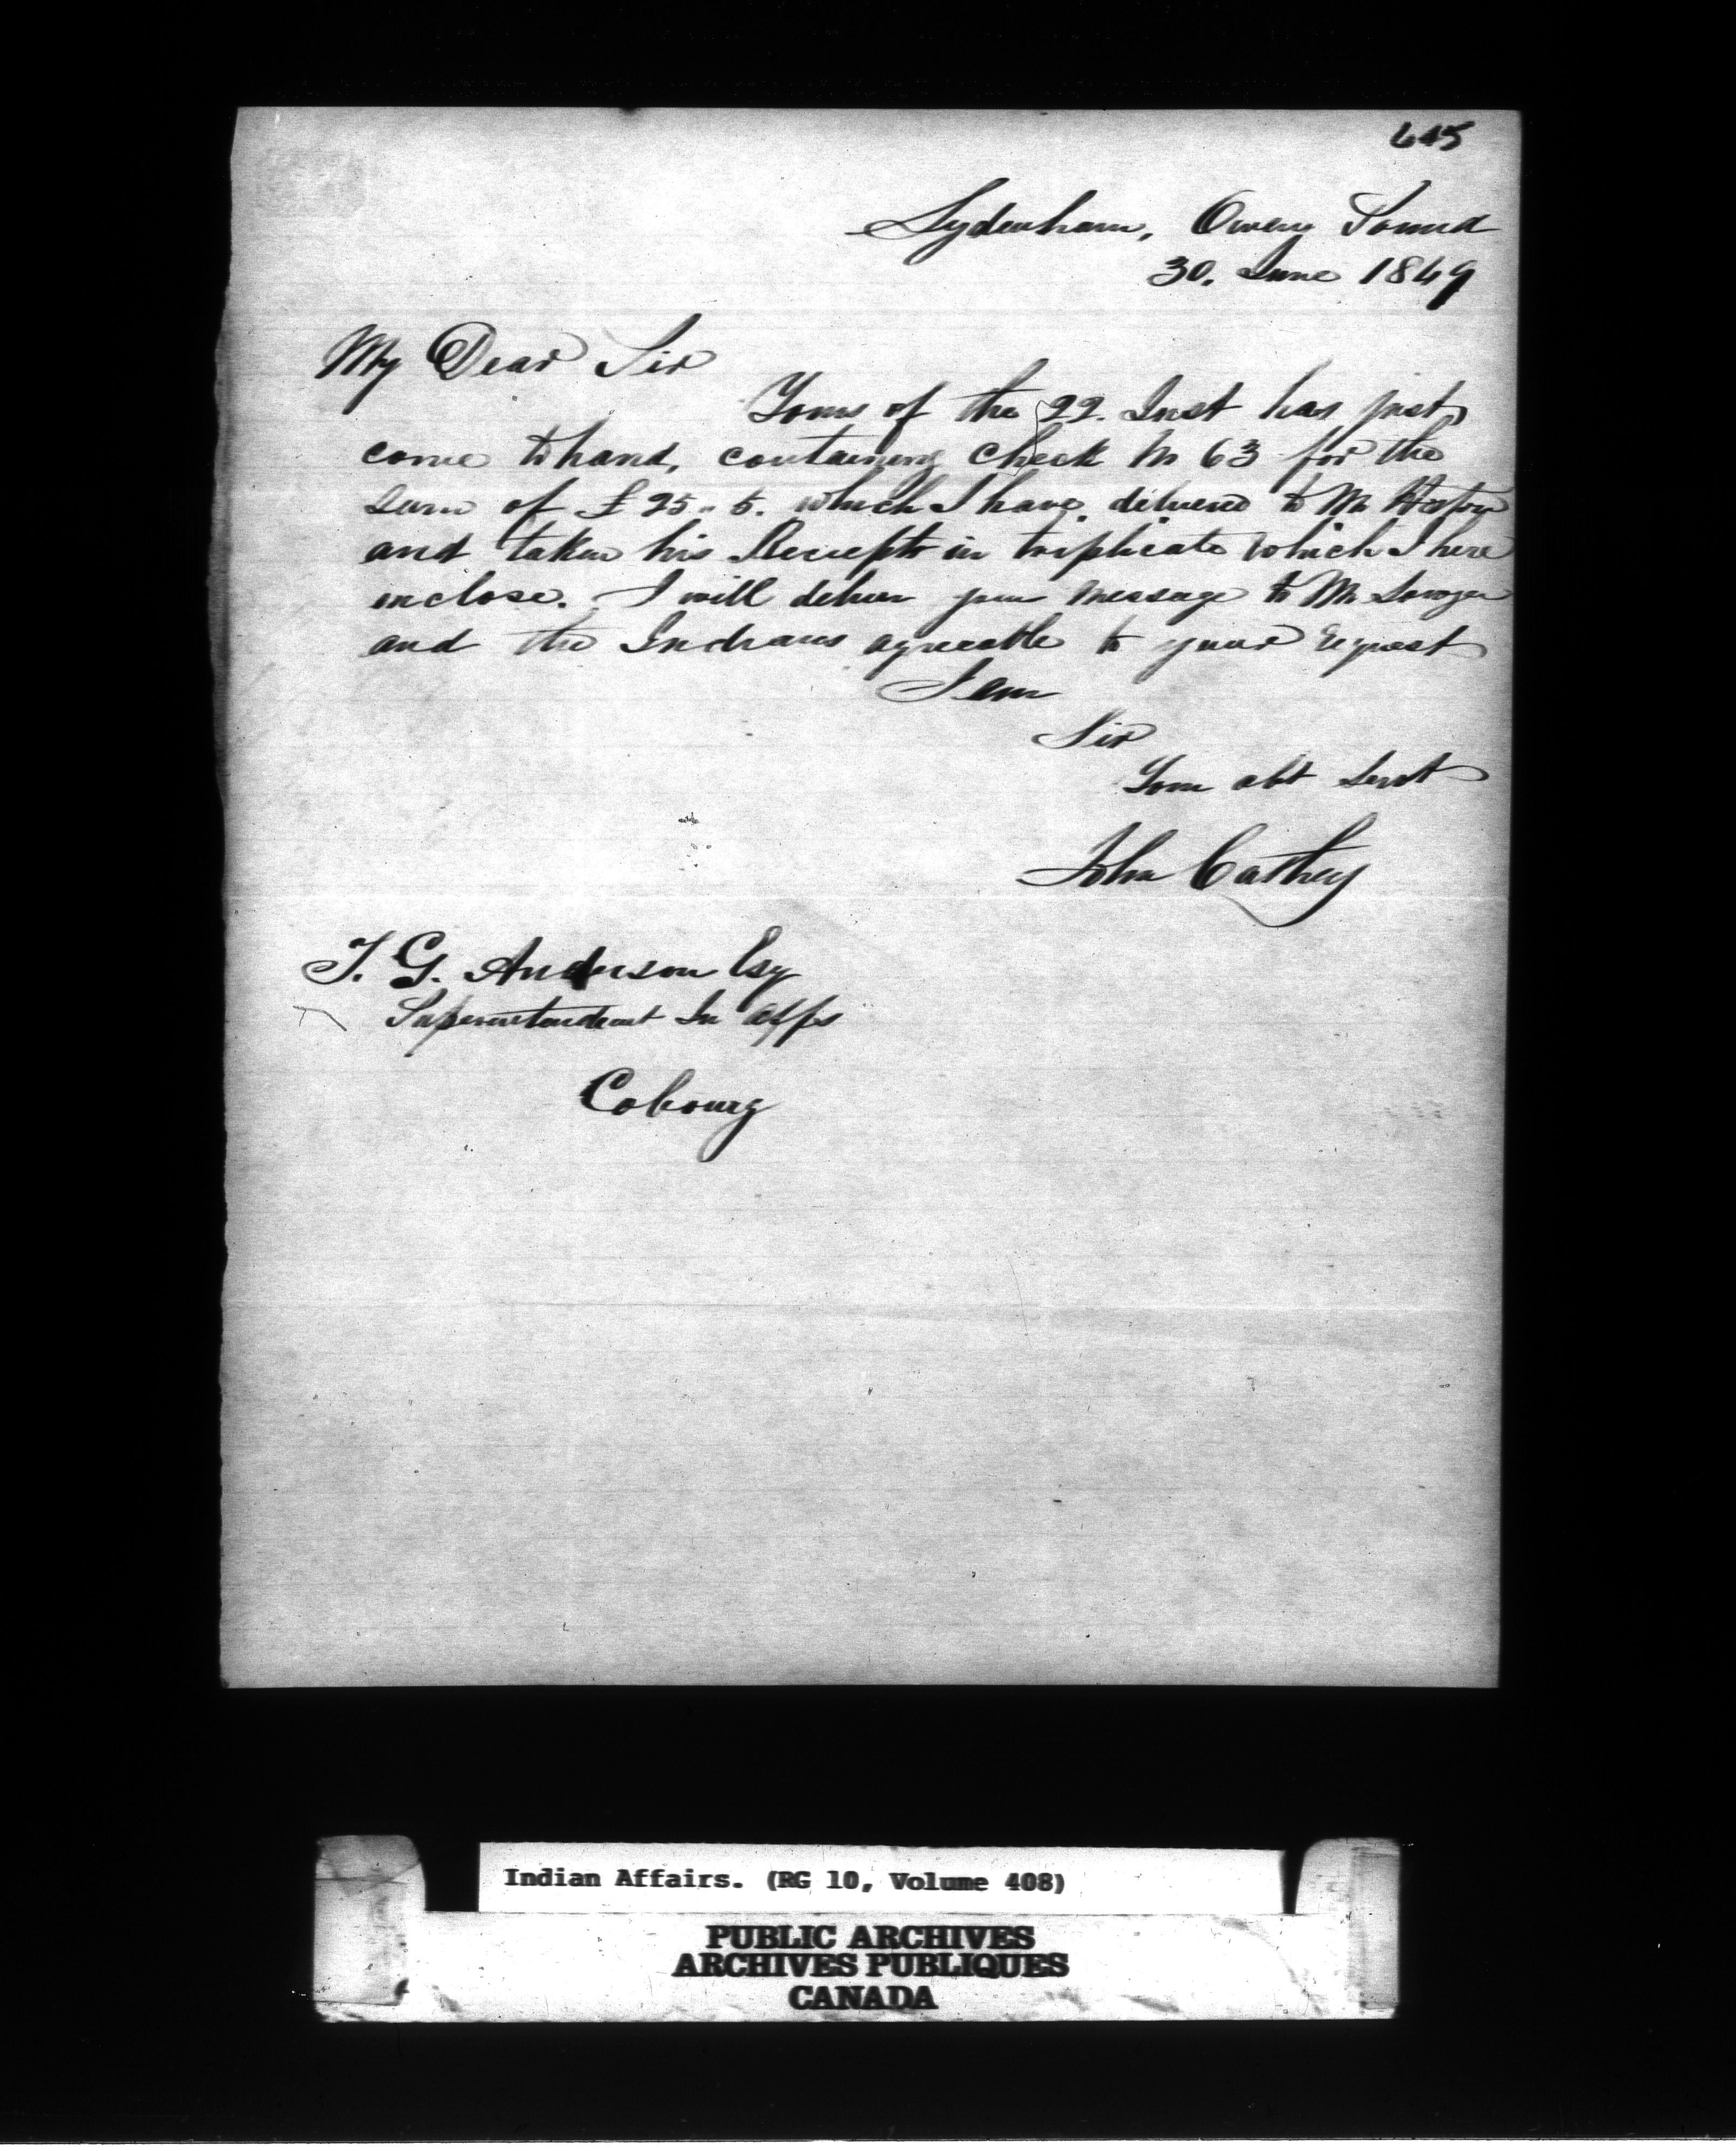 645
Sydenham, Owen Sound
30. June 1849
My Dear Sir
Yours of the 22. Inst has just
come to hand, containing Check No 63 for the
sum of £25..5. which I have delivered to Mr
and taken his Receipts in triplicate which I here
inclose. I will deliver your message to Mr
and the Indians agreeable to your request
I am
Sir
Your obt Servt
John Carthey
T. G. Anderson Esq
Superintendent In Affs
Cobourg
Indian Affairs. (RG 10, Volume 408)
PUBLIC ARCHIVES
ARCHIVES PUBLIQUES
CANADA